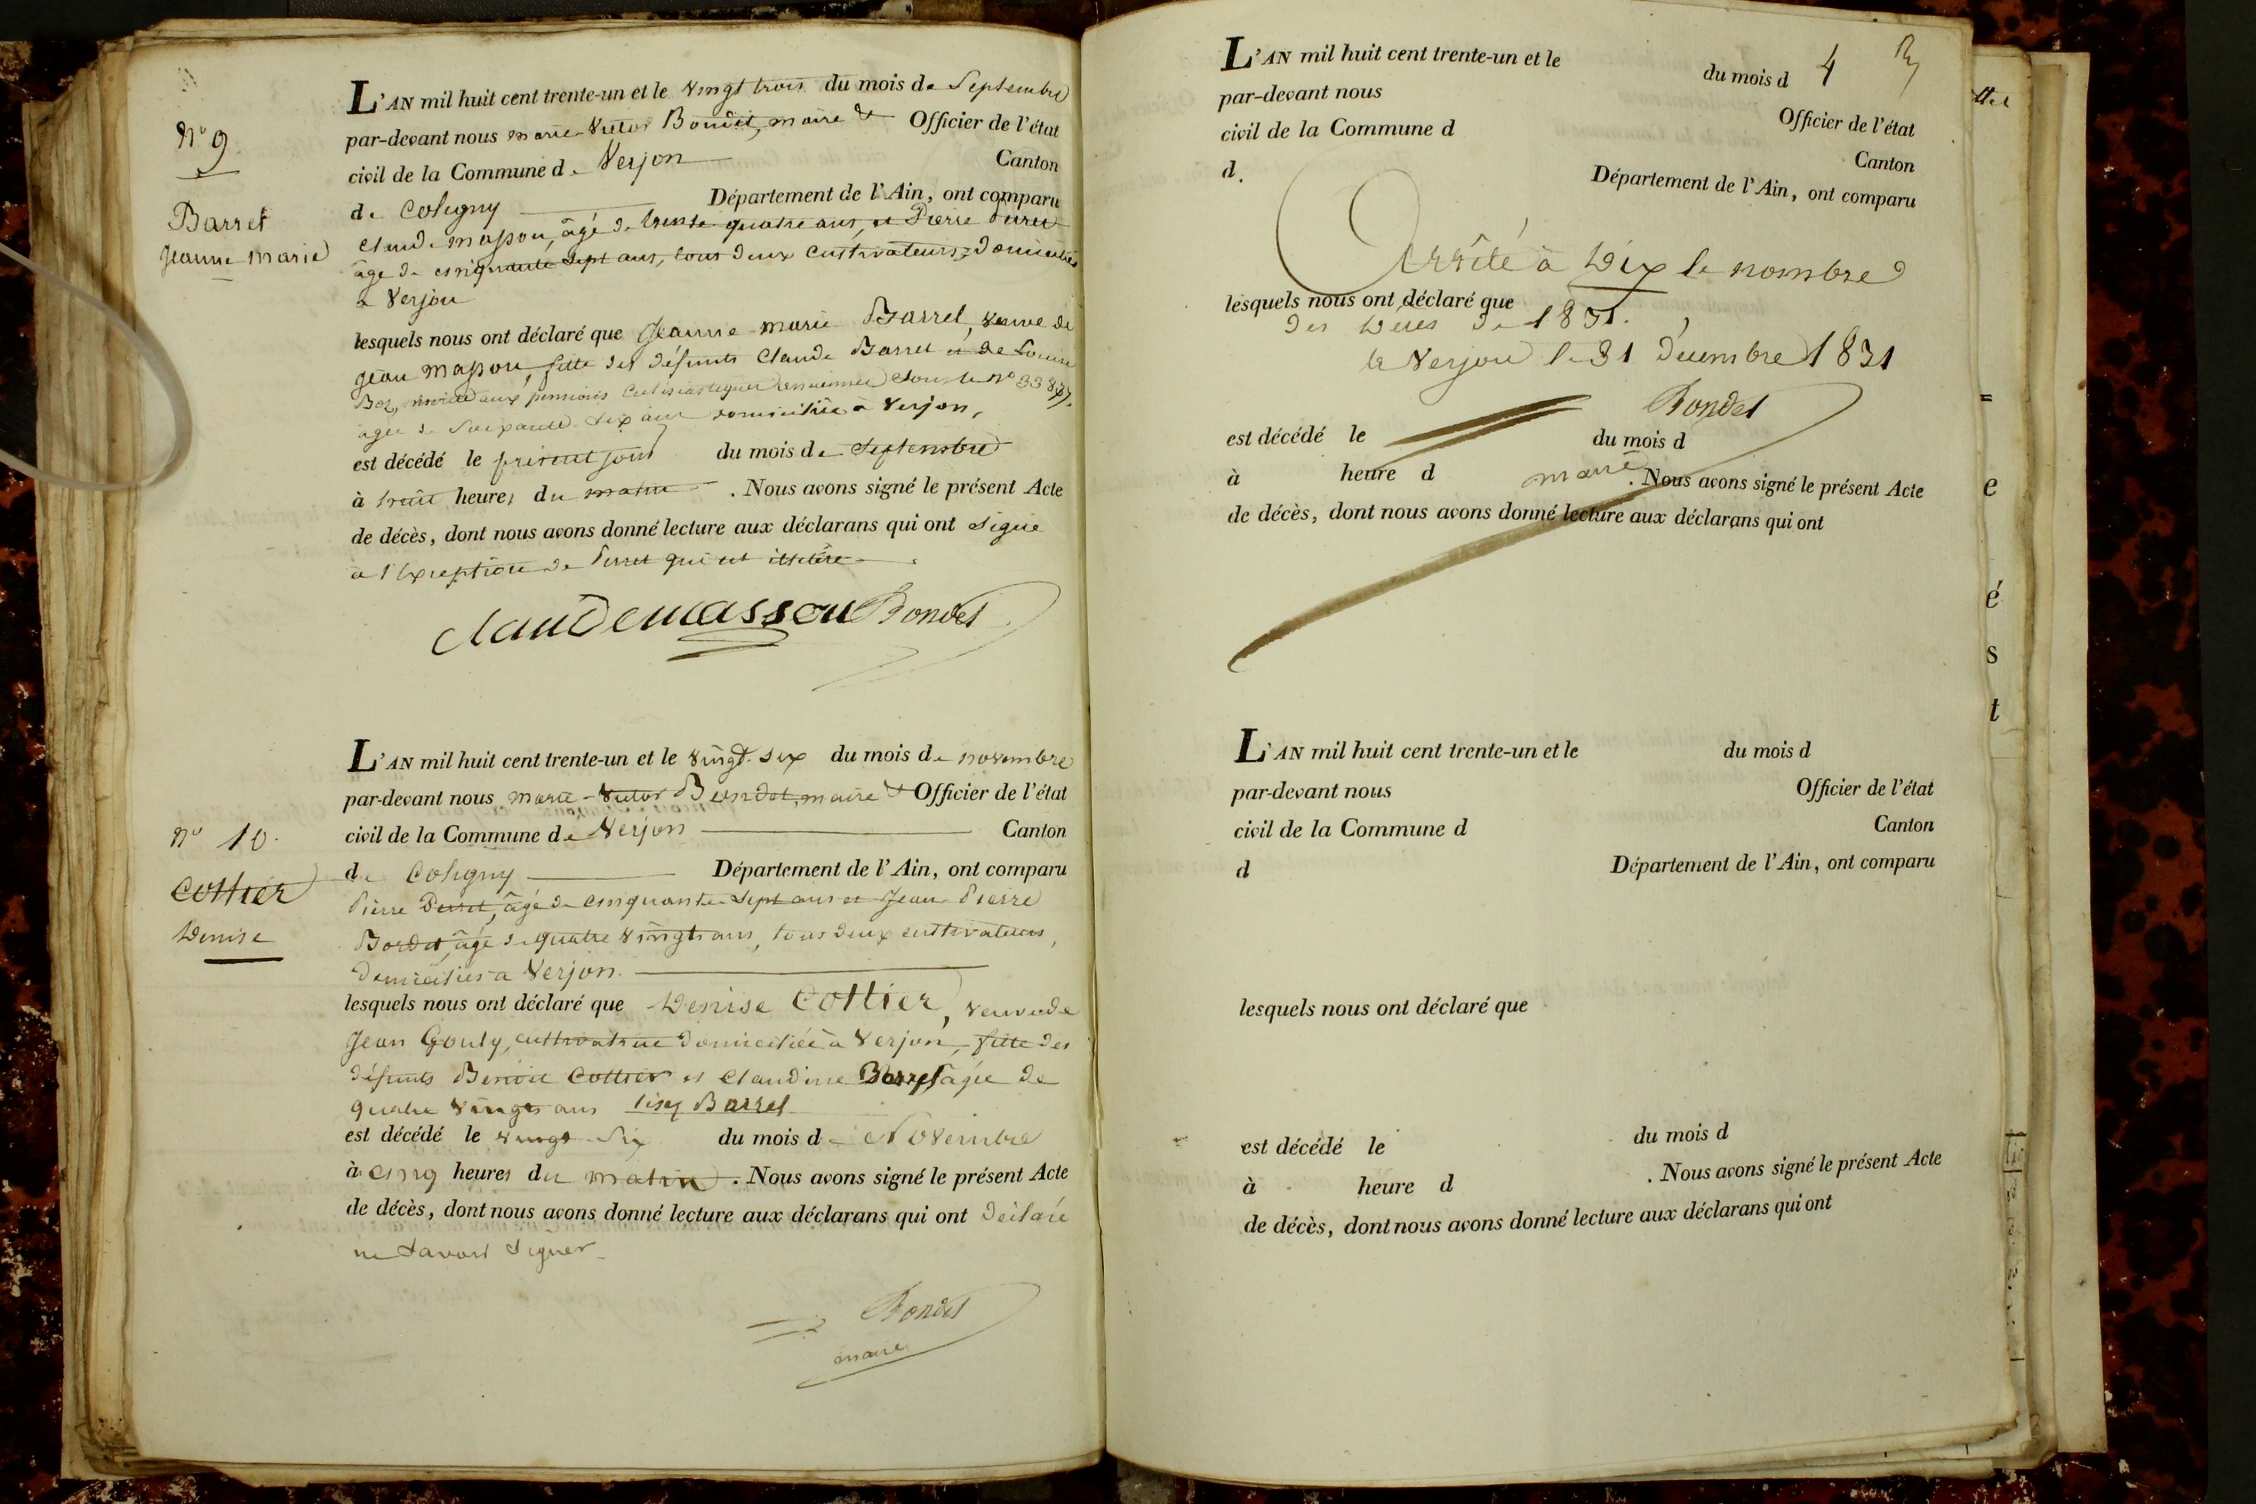 N° 9.
Barret
Jeanne marie
L'AN mil huit cent trente-un et le vingt trois du mois de Septembre
par-devant nous marie-Victor Bondet, maire & Officier de l'état
civil de la Commune de Verjon Canton
de Coligny Département de l'Ain, ont comparu
Claude masson, âgé de trente quatre ans, et Pierre Perret
âgé de cinquante sept ans, tous deux cultivateurs, domiciliés
a Verjon
lesquels nous ont déclaré que Jeanne-marie Barret, veuve de
Jean masson, fille des défunts Claude Barret et de Louise
aux pensions Eclésiastiques sous le N°
âgée de Soixante-dix ans domiciliée à Verjon,
est décédé le présent jour du mois de Septembre
à huit heures du matin. Nous avons signé le présent Acte
de décès, dont nous avons donné lecture aux déclarans qui ont signé
a l'Exception de Perret qui est illétéré
Claude masson Bondet
N° 10.
Cottier
Denise
L'AN mil huit cent trente-un et le vingt-six du mois de novembre
par-devant nous marie-Victor Bondet, maire & Officier de l'état
civil de la Commune de Verjon Canton
de Coligny Département de l'Ain, ont comparu
Pierre Perret, âgé de cinquante-sept ans et Jean-Pierre
Bordet, âgé de quatre vingts ans, tous deux cultivateurs,
domiciliés a Verjon.
lesquels nous ont déclaré que Denise Cottier, veuve de
Jean Gouly, cultivatrice domiciliée à Verjon, fille des
défunts Benoit Cottier et Claudine âgée de
quatre vingts ans lisez Barret
est décédé le vingt-six du mois de Novembre
à cinq heures du matin. Nous avons signé le présent Acte
de décès, dont nous avons donné lecture aux déclarans qui ont déclaré
ne savoir signer
Bondet
maire
4
L'AN mil huit cent trente-un et le du mois d
par-devant nous Officier de l'état
civil de la Commune d Canton
d. Département de l'Ain, ont comparu
Arrêté à Dix le nombre
lesquels nous ont déclaré que
des Décès de 1831.
à Verjon le 31 Décembre 1831
Bondet
est décédé le du mois d
maire
à heure d . Nous avons signé le présent Acte
de décès, dont nous avons donné lecture aux déclarans qui ont
L'AN mil huit cent trente-un et le du mois d
par-devant nous Officier de l'état
civil de la Commune d Canton
d Département de l'Ain, ont comparu
lesquels nous ont déclaré que
est décédé le du mois d
à heure d . Nous avons signé le présent Acte
de décès, dont nous avons donné lecture aux déclarans qui ont
e
é
s
t